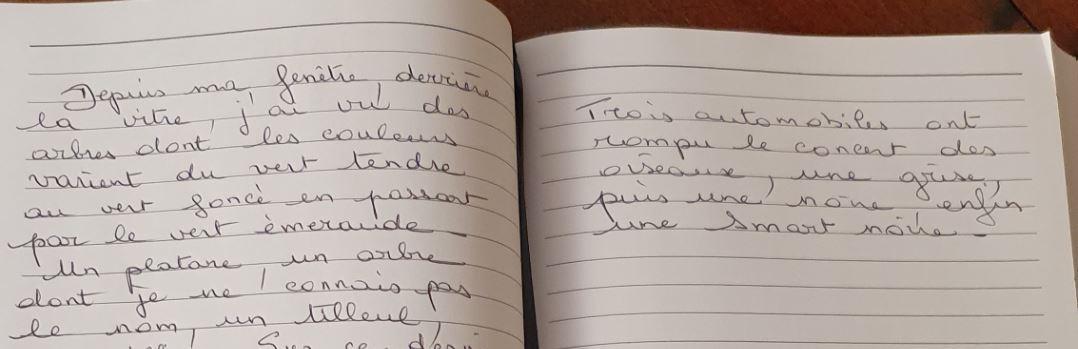 Depuis ma fenêtre derrière
la vitre, j'ai vu des
arbres dont les couleurs
varient du vert tendre
au vert foncé en passant
par le vert émeraude -
Un platane un arbre
dont je ne connais pas
le nom, un tilleul,
Sur ce
Trois automobiles ont
rompu le concert des
oiseaux, une grise,
puis une noire enfin
une Smart noire -